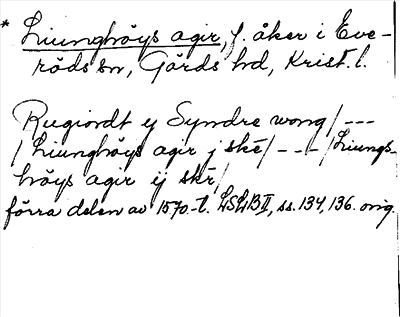 * Liunghöys agir, f. åker i Eve-
röds sn, Gärds hd, Krist. l.
Rugiordt ij Syndre wong/ ---
/Liunghöys agir j skè/ --- /Liungs-
höys agir ij skr/
förra delen av 1570-t. LSLB II, ss. 134, 136. orig.